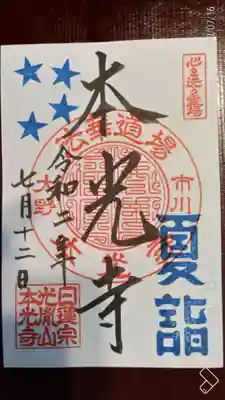 心の[illegible]の霊場
本光寺
法華道場
市川
大野
本光寺
夏詣
令和二年
七月十二日
日蓮宗
光胤山
本光寺